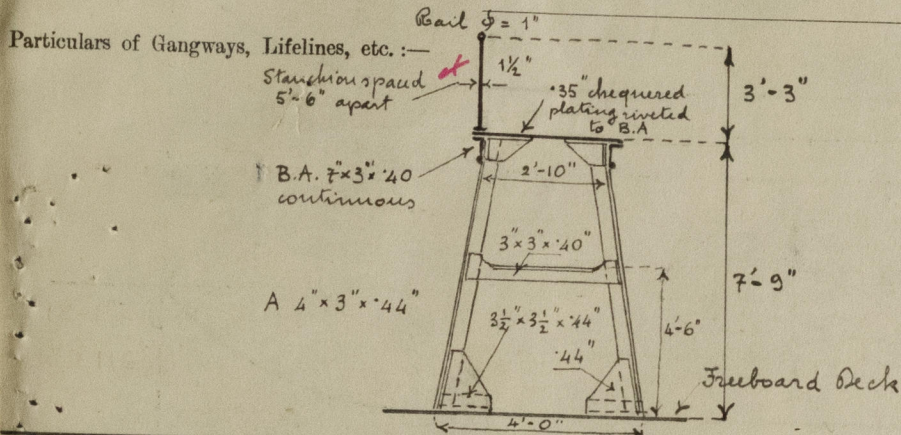 Rail ⌀ = 1"
Particulars of Gangways, Lifelines, etc. :—
Stanchion spaced
5'-6" apart
1½"
.35" chequered
plating riveted
to B.A
3'-3"
B.A. 7"x3"x.40
continuous
2'-10"
3"x3"x.40"
7'-9"
A 4"x3"x.44"
3½"x3½"x.44"
.44"
4'-6"
Freeboard Deck
4'-0"